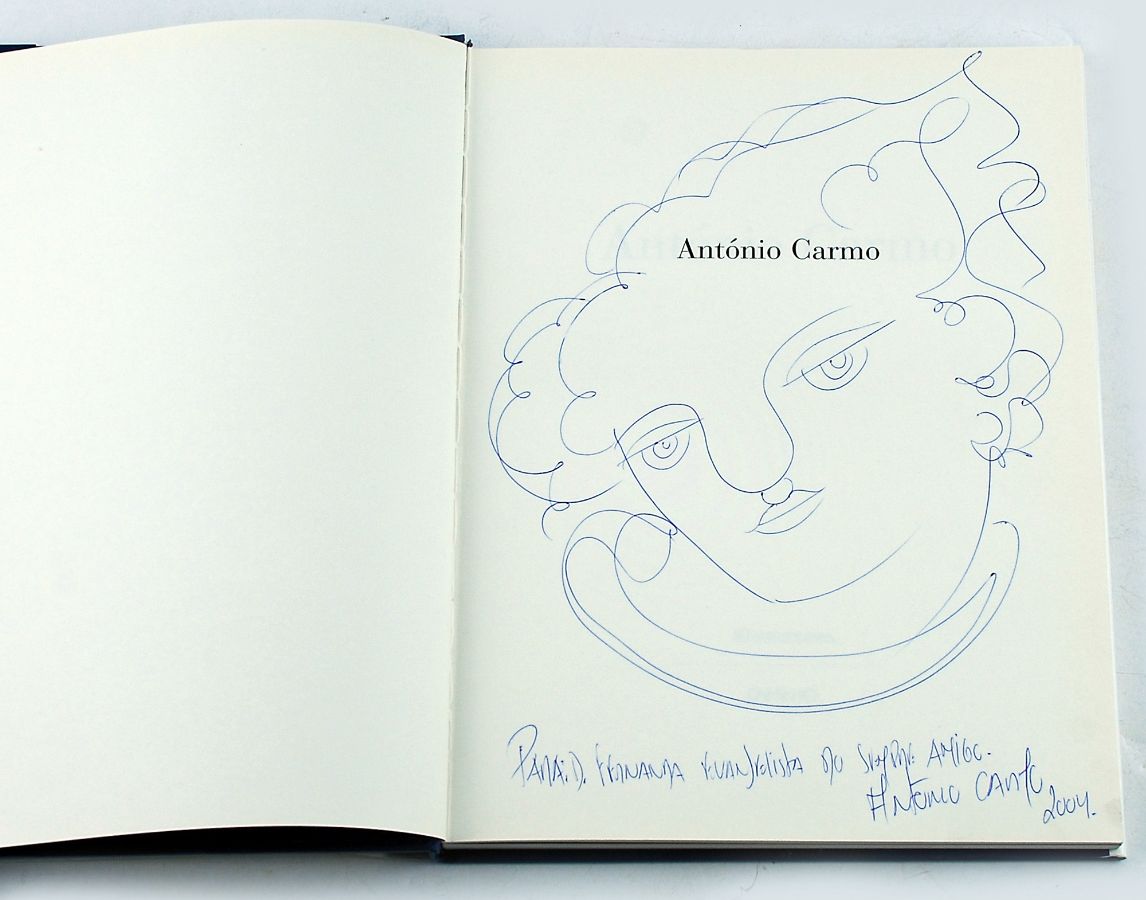 António Carmo
Para: D. Fernanda Evangelista do sempre amigo.
António Carmo
2004.